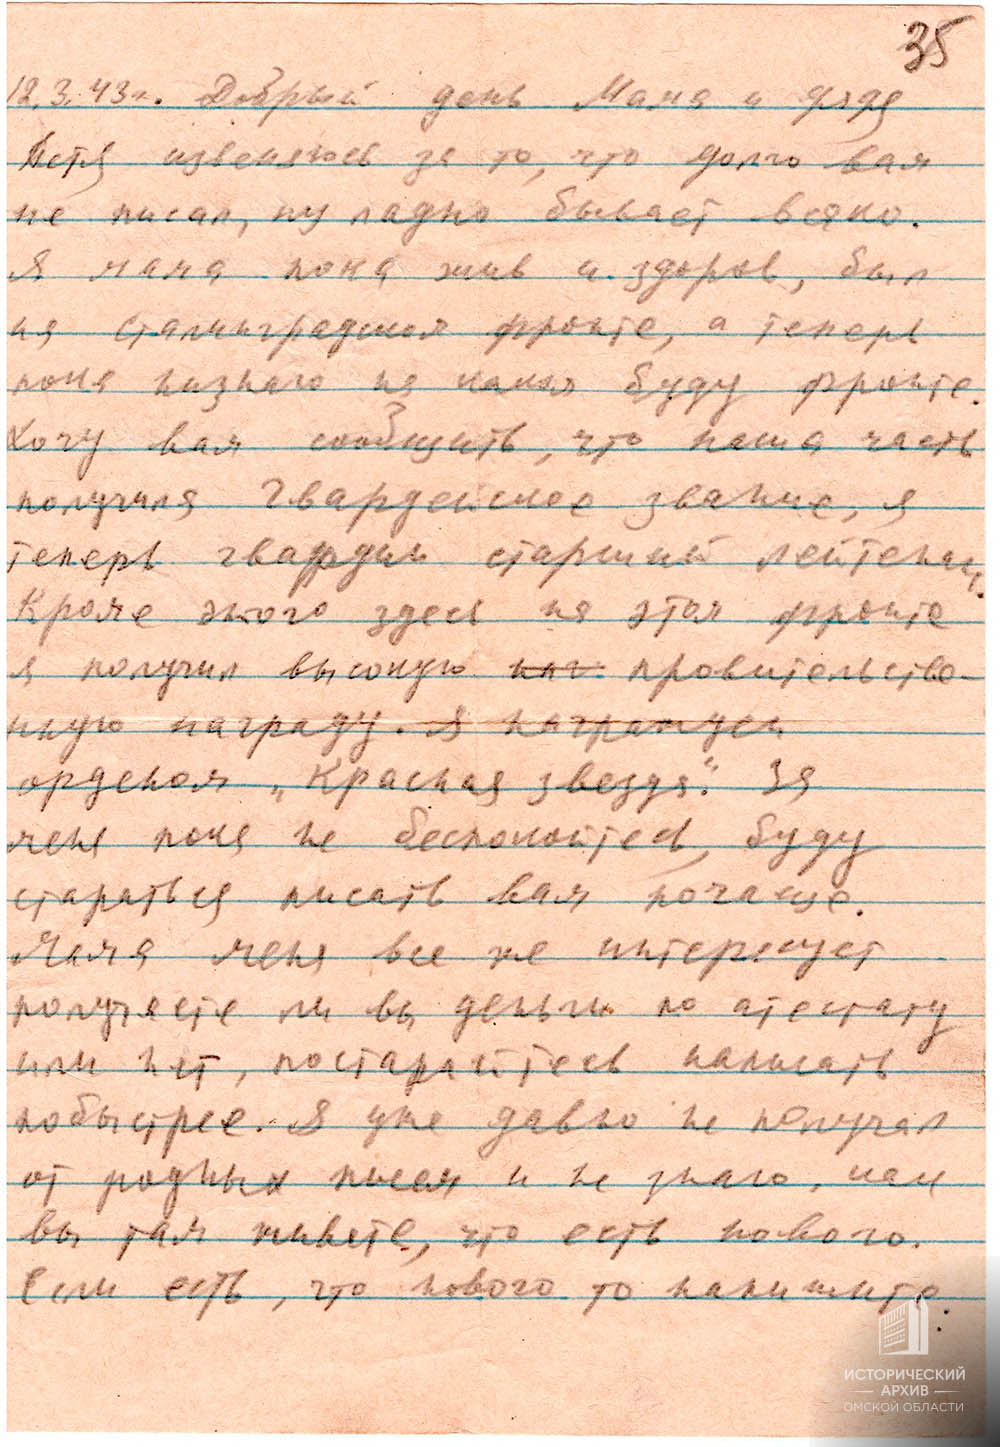 35
12.3.43г. Добрый день Мама и дядя
Петя извеняюсь за то, что долго вам
не писал, ну ладно бывает всяко.
Я мама пока жив и здоров, был
на сталинградском фронте, а теперь
пока незнаю на каком буду фронте.
Хочу вам сообщить, что наша часть
получила Гвардейское звание, я
теперь гвардии старший лейтенант.
Кроме этого здесь на этом фронте
я получил высокую провительстве-
нную награду. Я награжден
орденом „Красная звезда". За
меня пока не беспокойтесь, буду
стараться писать вам почаще.
Мама меня все же интересует
получаете ли вы деньги по атестату
или нет, постарайтесь написать
побыстрее. Я уже давно не получал
от родных писем и не знаю, как
вы там живете, что есть нового.
Если есть, что нового то напишите.
ИСТОРИЧЕСКИЙ
АРХИВ
ОМСКОЙ ОБЛАСТИ